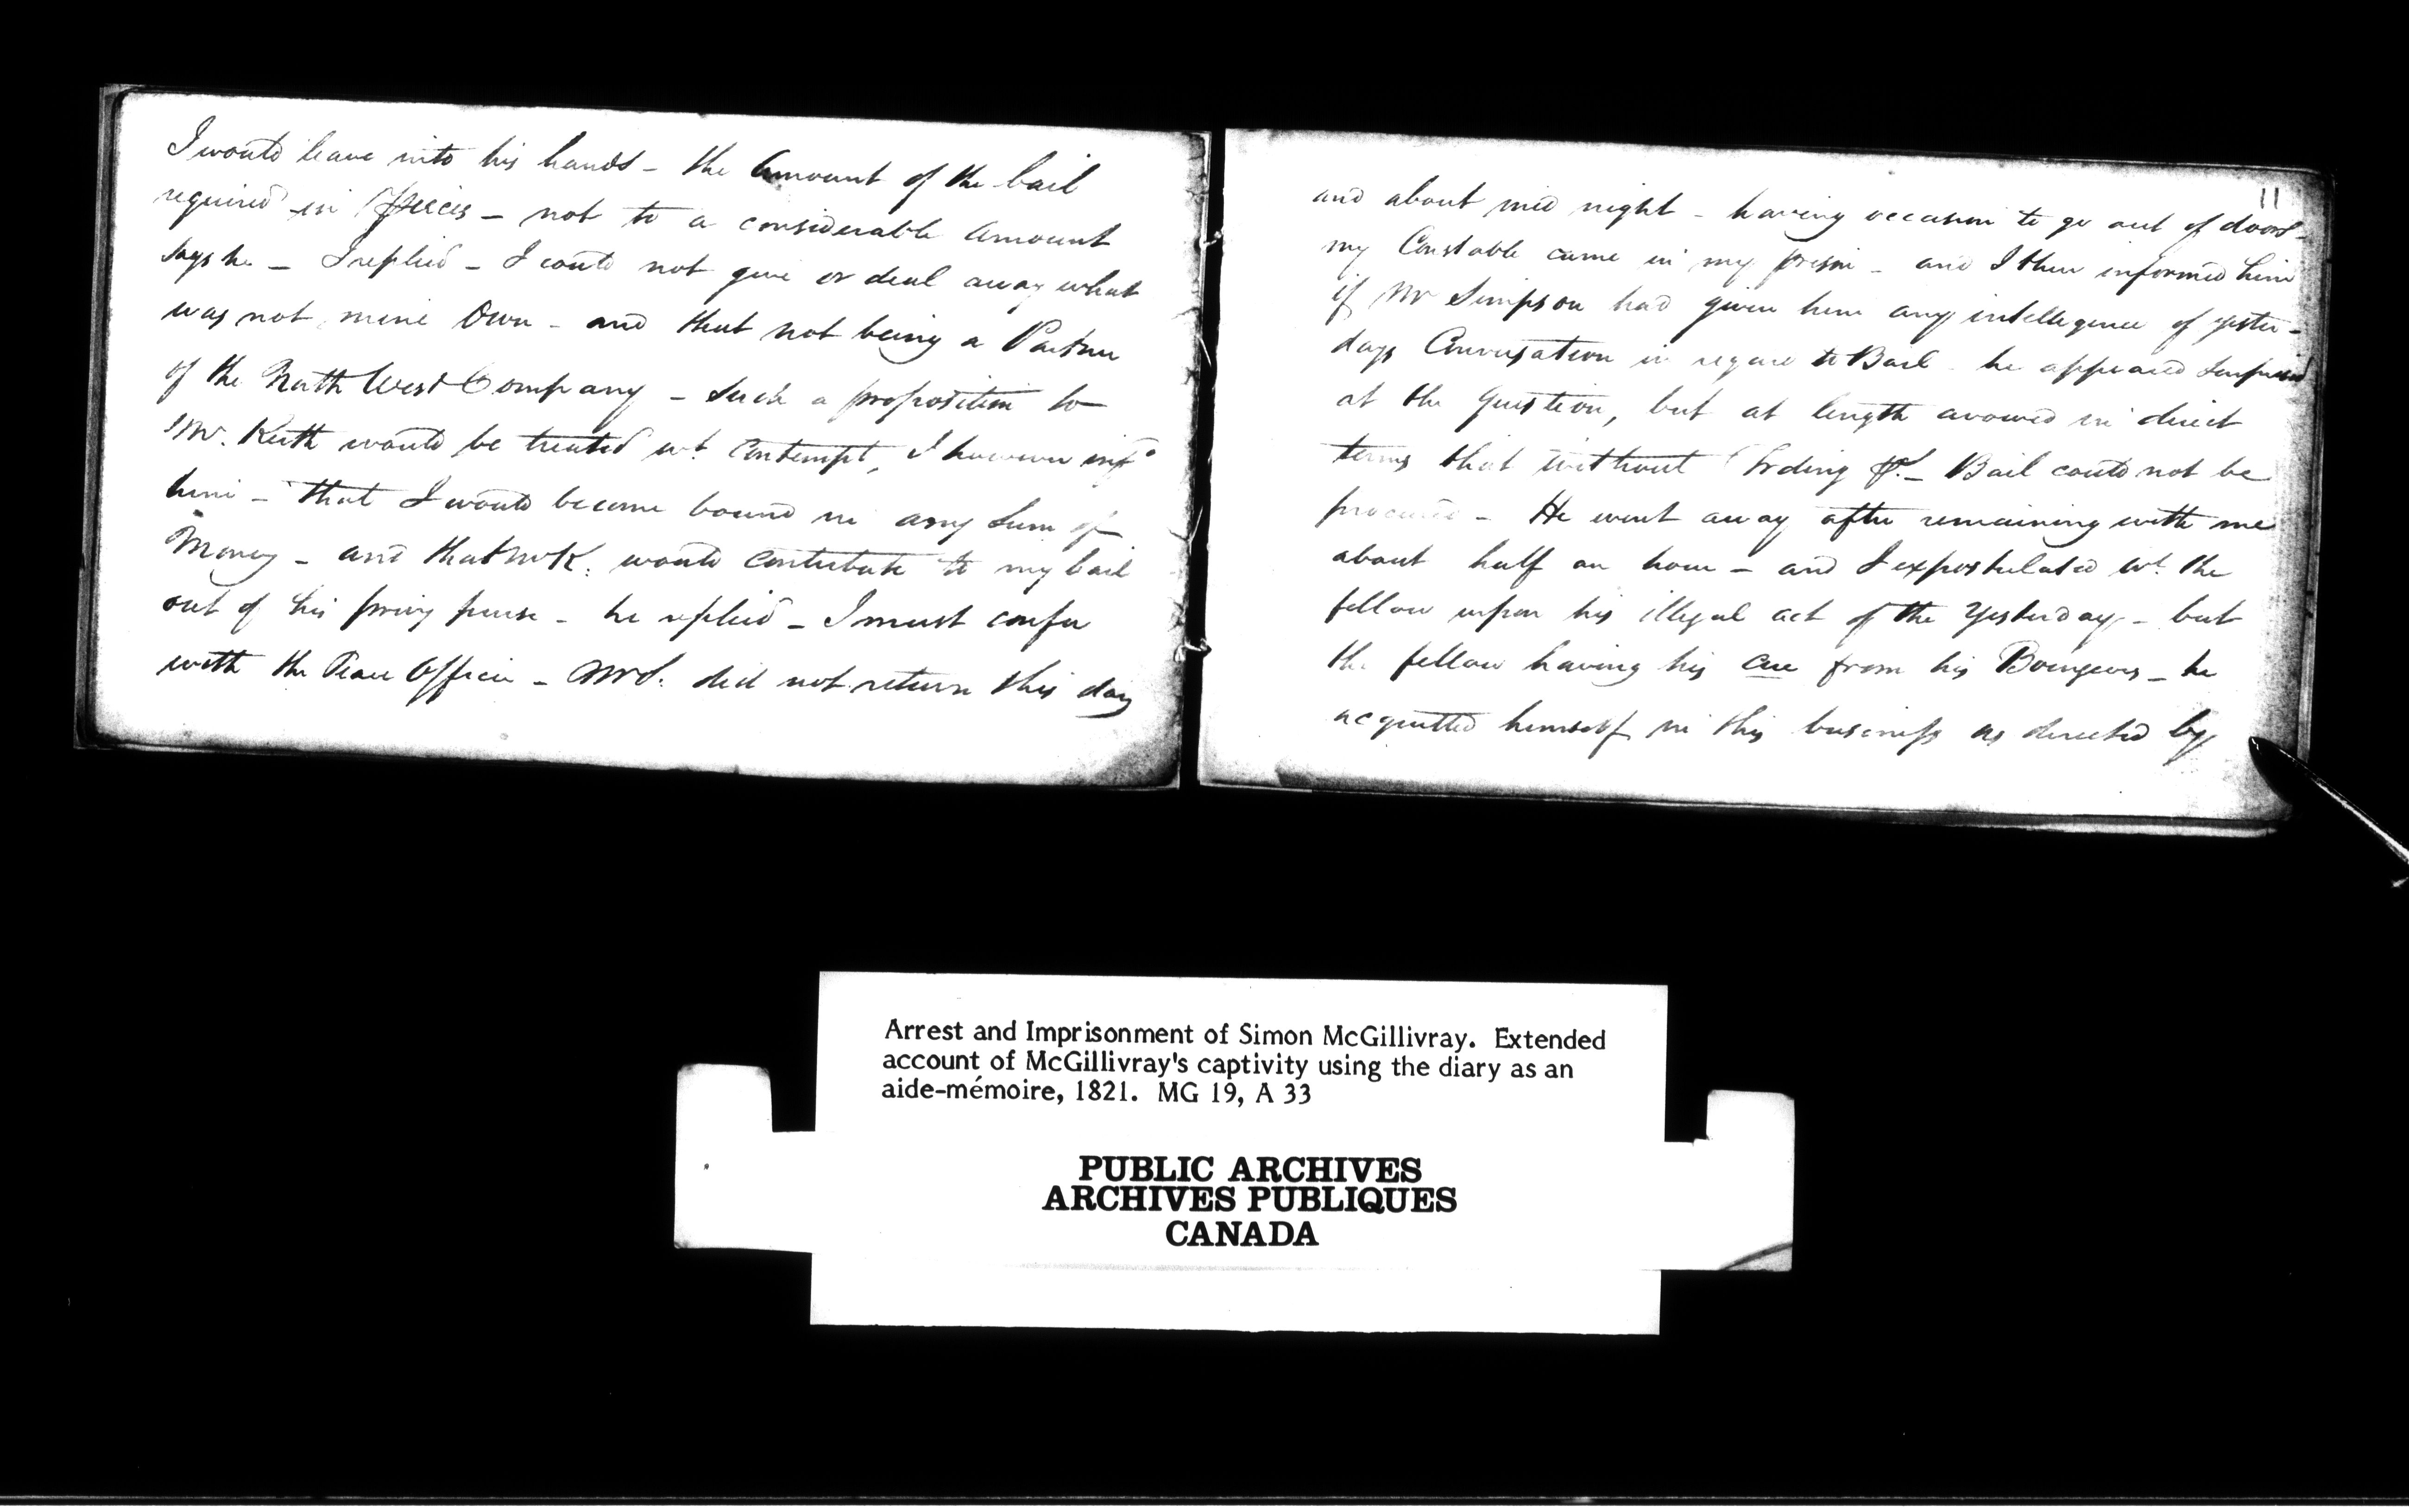 I would leave into his hands – the Amount of the bail
required in Specis – not to a considerable Amount
says he – I replied – I could not give or deal away what
was not mine Own – and that not being a Partner
of the North West Company – such a proposition to
Mr. Keith would be treated wt. Contempt, I however infd
him – that I would become bound in any Sum of
Money – and that Mr K: would contribute to my bail
out of his privy purse – he replied – I must confer
with the Peace Officer – Mr S. did not return this day
11
and about mid night – having occasion to go out of doors –
my Constable came in my prison – and I then informed him
if Mr Simpson had given him any intelligence of yester-
days Conversation in regard to Bail – he appeared surprised
at the question, but at length avowed in direct
terms that without Bail could not be
procured – He went away after remaining with me
about half an hour – and I expostulated wt. the
fellow upon his illegal act of the Yesterday – but
the fellow having his cue from his Bourgeois – he
acquitted himself in this business as directed by
Arrest and Imprisonment of Simon McGillivray. Extended
account of McGillivray's captivity using the diary as an
aide-mémoire, 1821. MG 19, A 33
PUBLIC ARCHIVES
ARCHIVES PUBLIQUES
CANADA